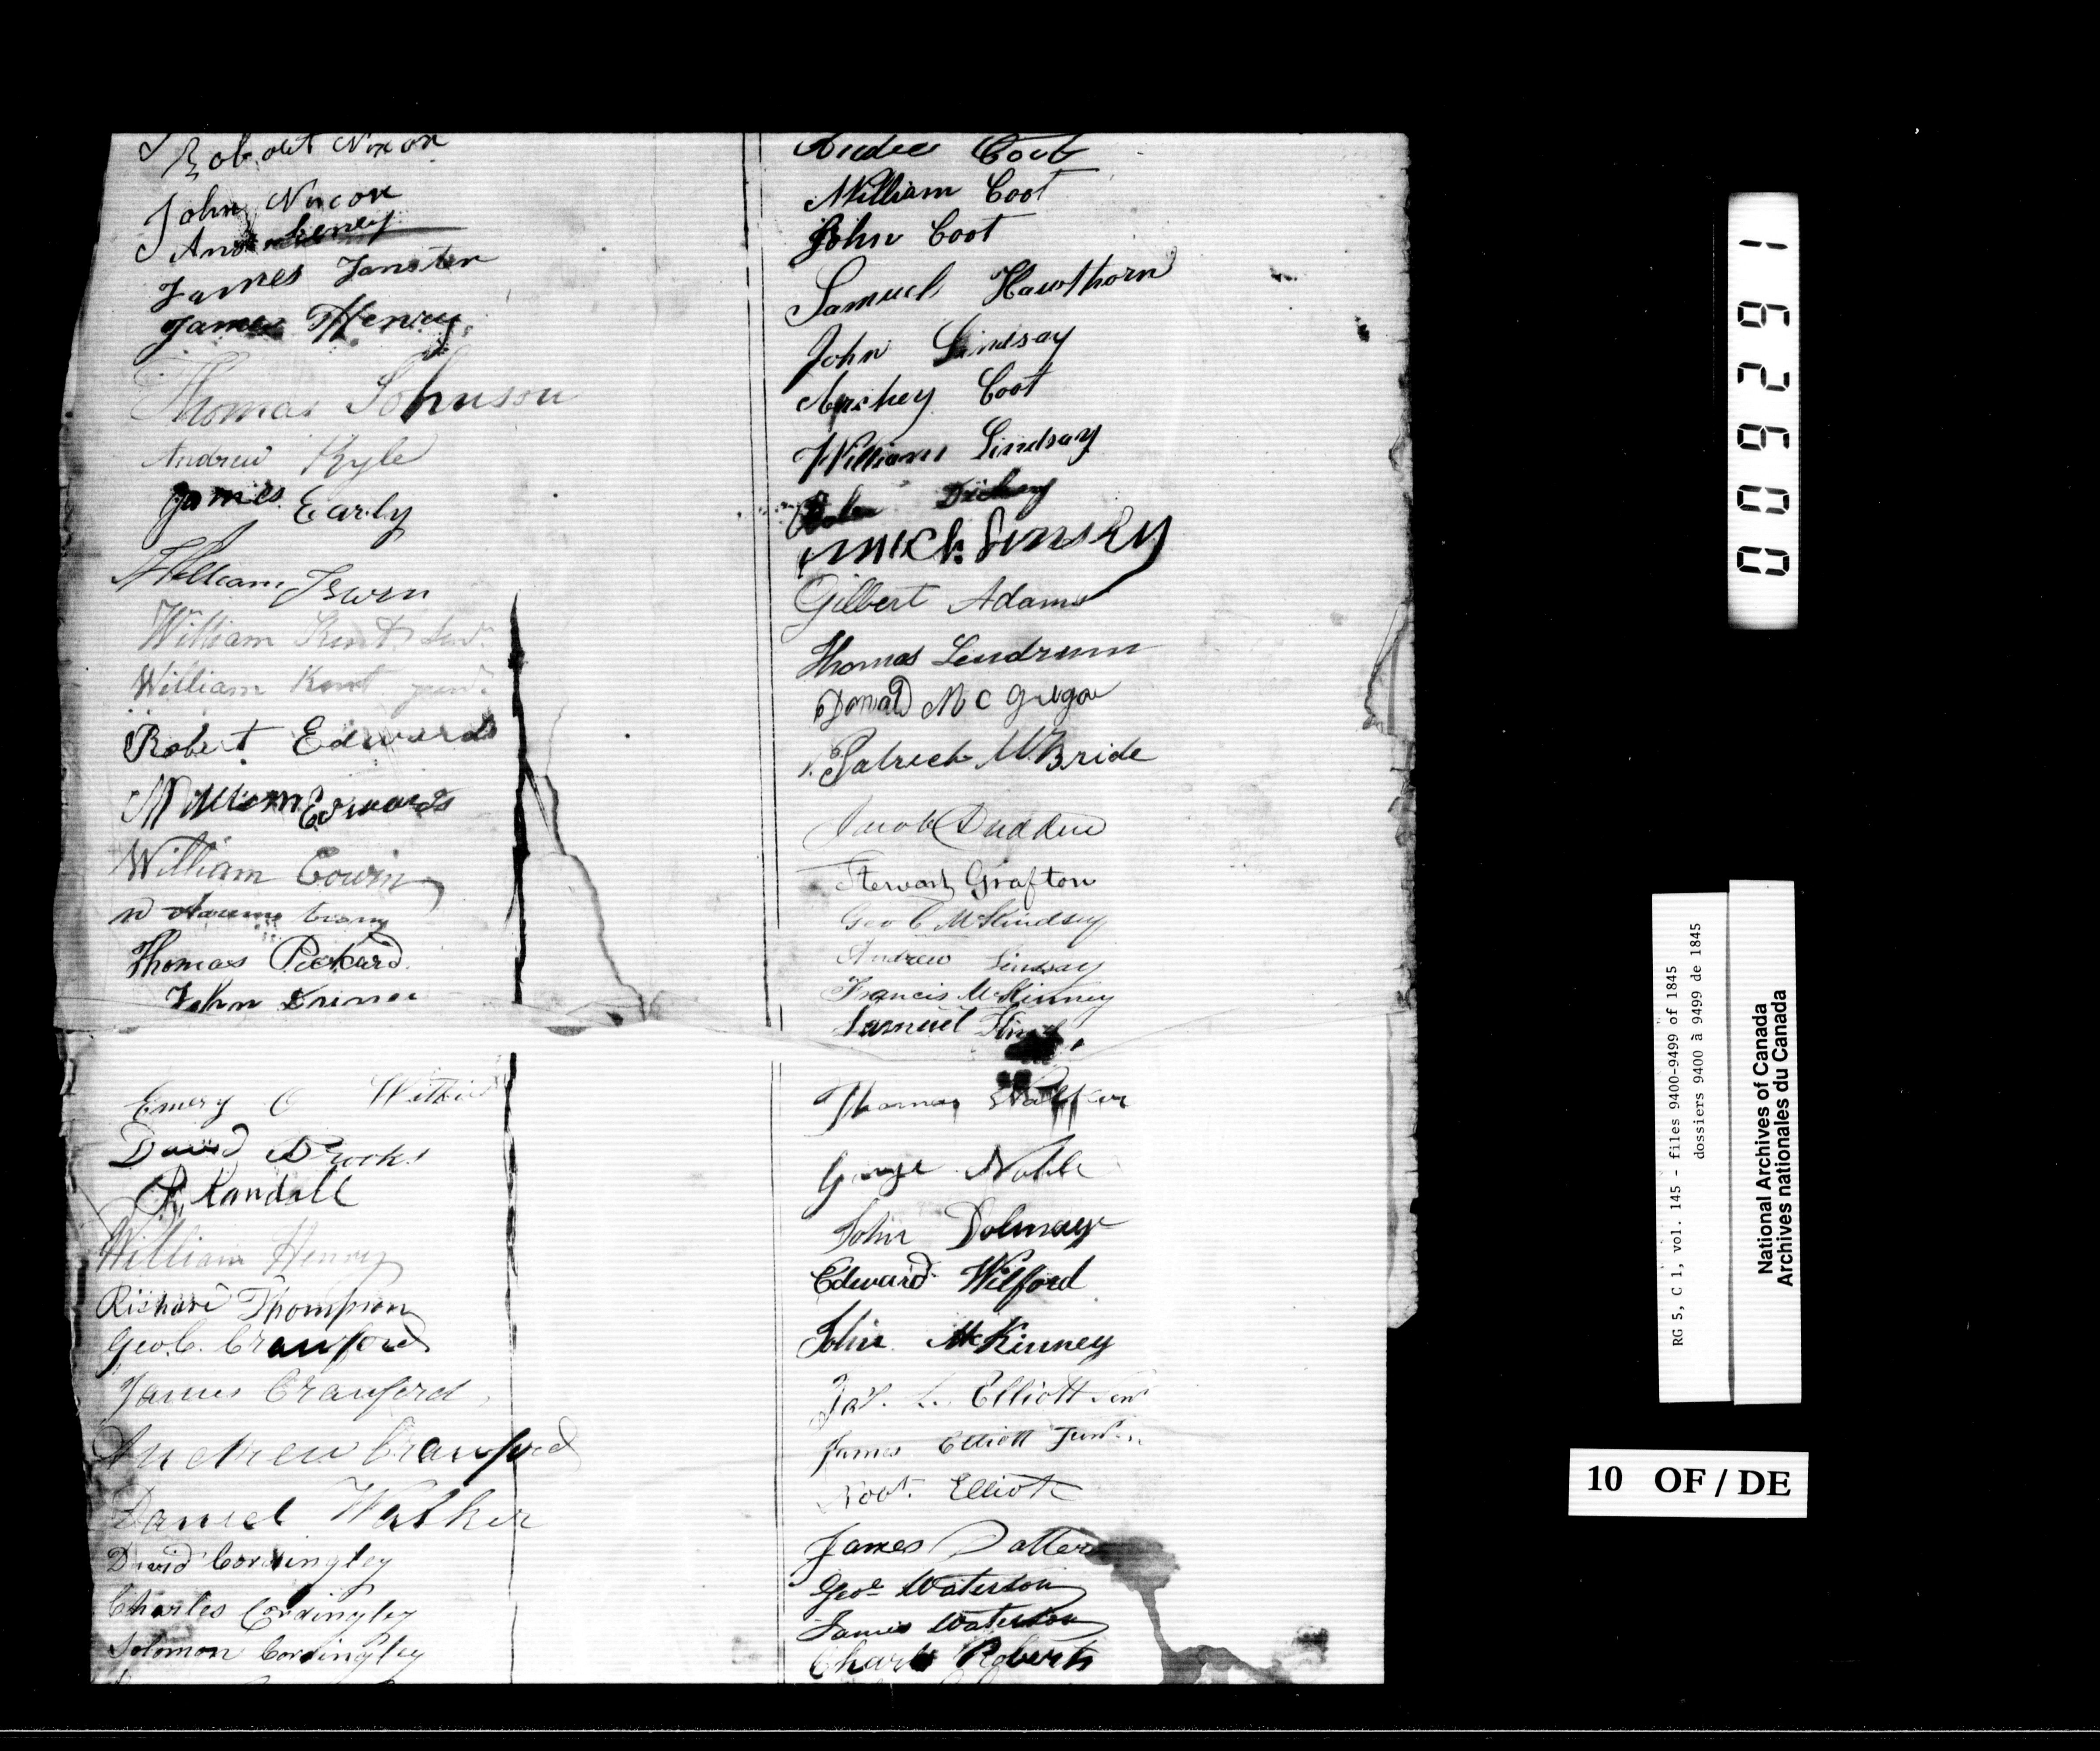 Robert Nixon
John Nixon
James
James Henry
Thomas Johnson
Andrew Kyle
James Early
William Irwin
William Kent Senr.
William Kent junr.
Robert Edwards
William Edwards
William Cowin
Thomas Pickard
John
Emery O
David Brooks
R. Randall
William Henry
Richard Thompson
Geo. C. Crawford
James Crawford
Andrew Crawford
Daniel Walker
David Cordingley
Charles Cordingley
Solomon Cordingley
Coot
William Coot
John Coot
Samuel Hawthorn
John Lindsay
Archey Coot
William Lindsay
Gilbert Adams
Thomas Lendrum
Donald McGregor
Patrick McBride
Jacob
Stewart Grafton
Geo C McKindsey
Andrew Lindsay
Francis McKinney
Samuel
Thomas Walker
George Noble
John Dolmage
Edward Wilford
John McKinney
Jas. L. Elliott Senr
James Elliott Junr.
Robt. Elliott
James
Geoe Waterson
James Waterson
Charls Roberts
009291
RG 5, C 1, vol. 145 - files 9400-9499 of 1845
dossiers 9400 à 9499 de 1845
National Archives of Canada
Archives nationales du Canada
10 OF / DE